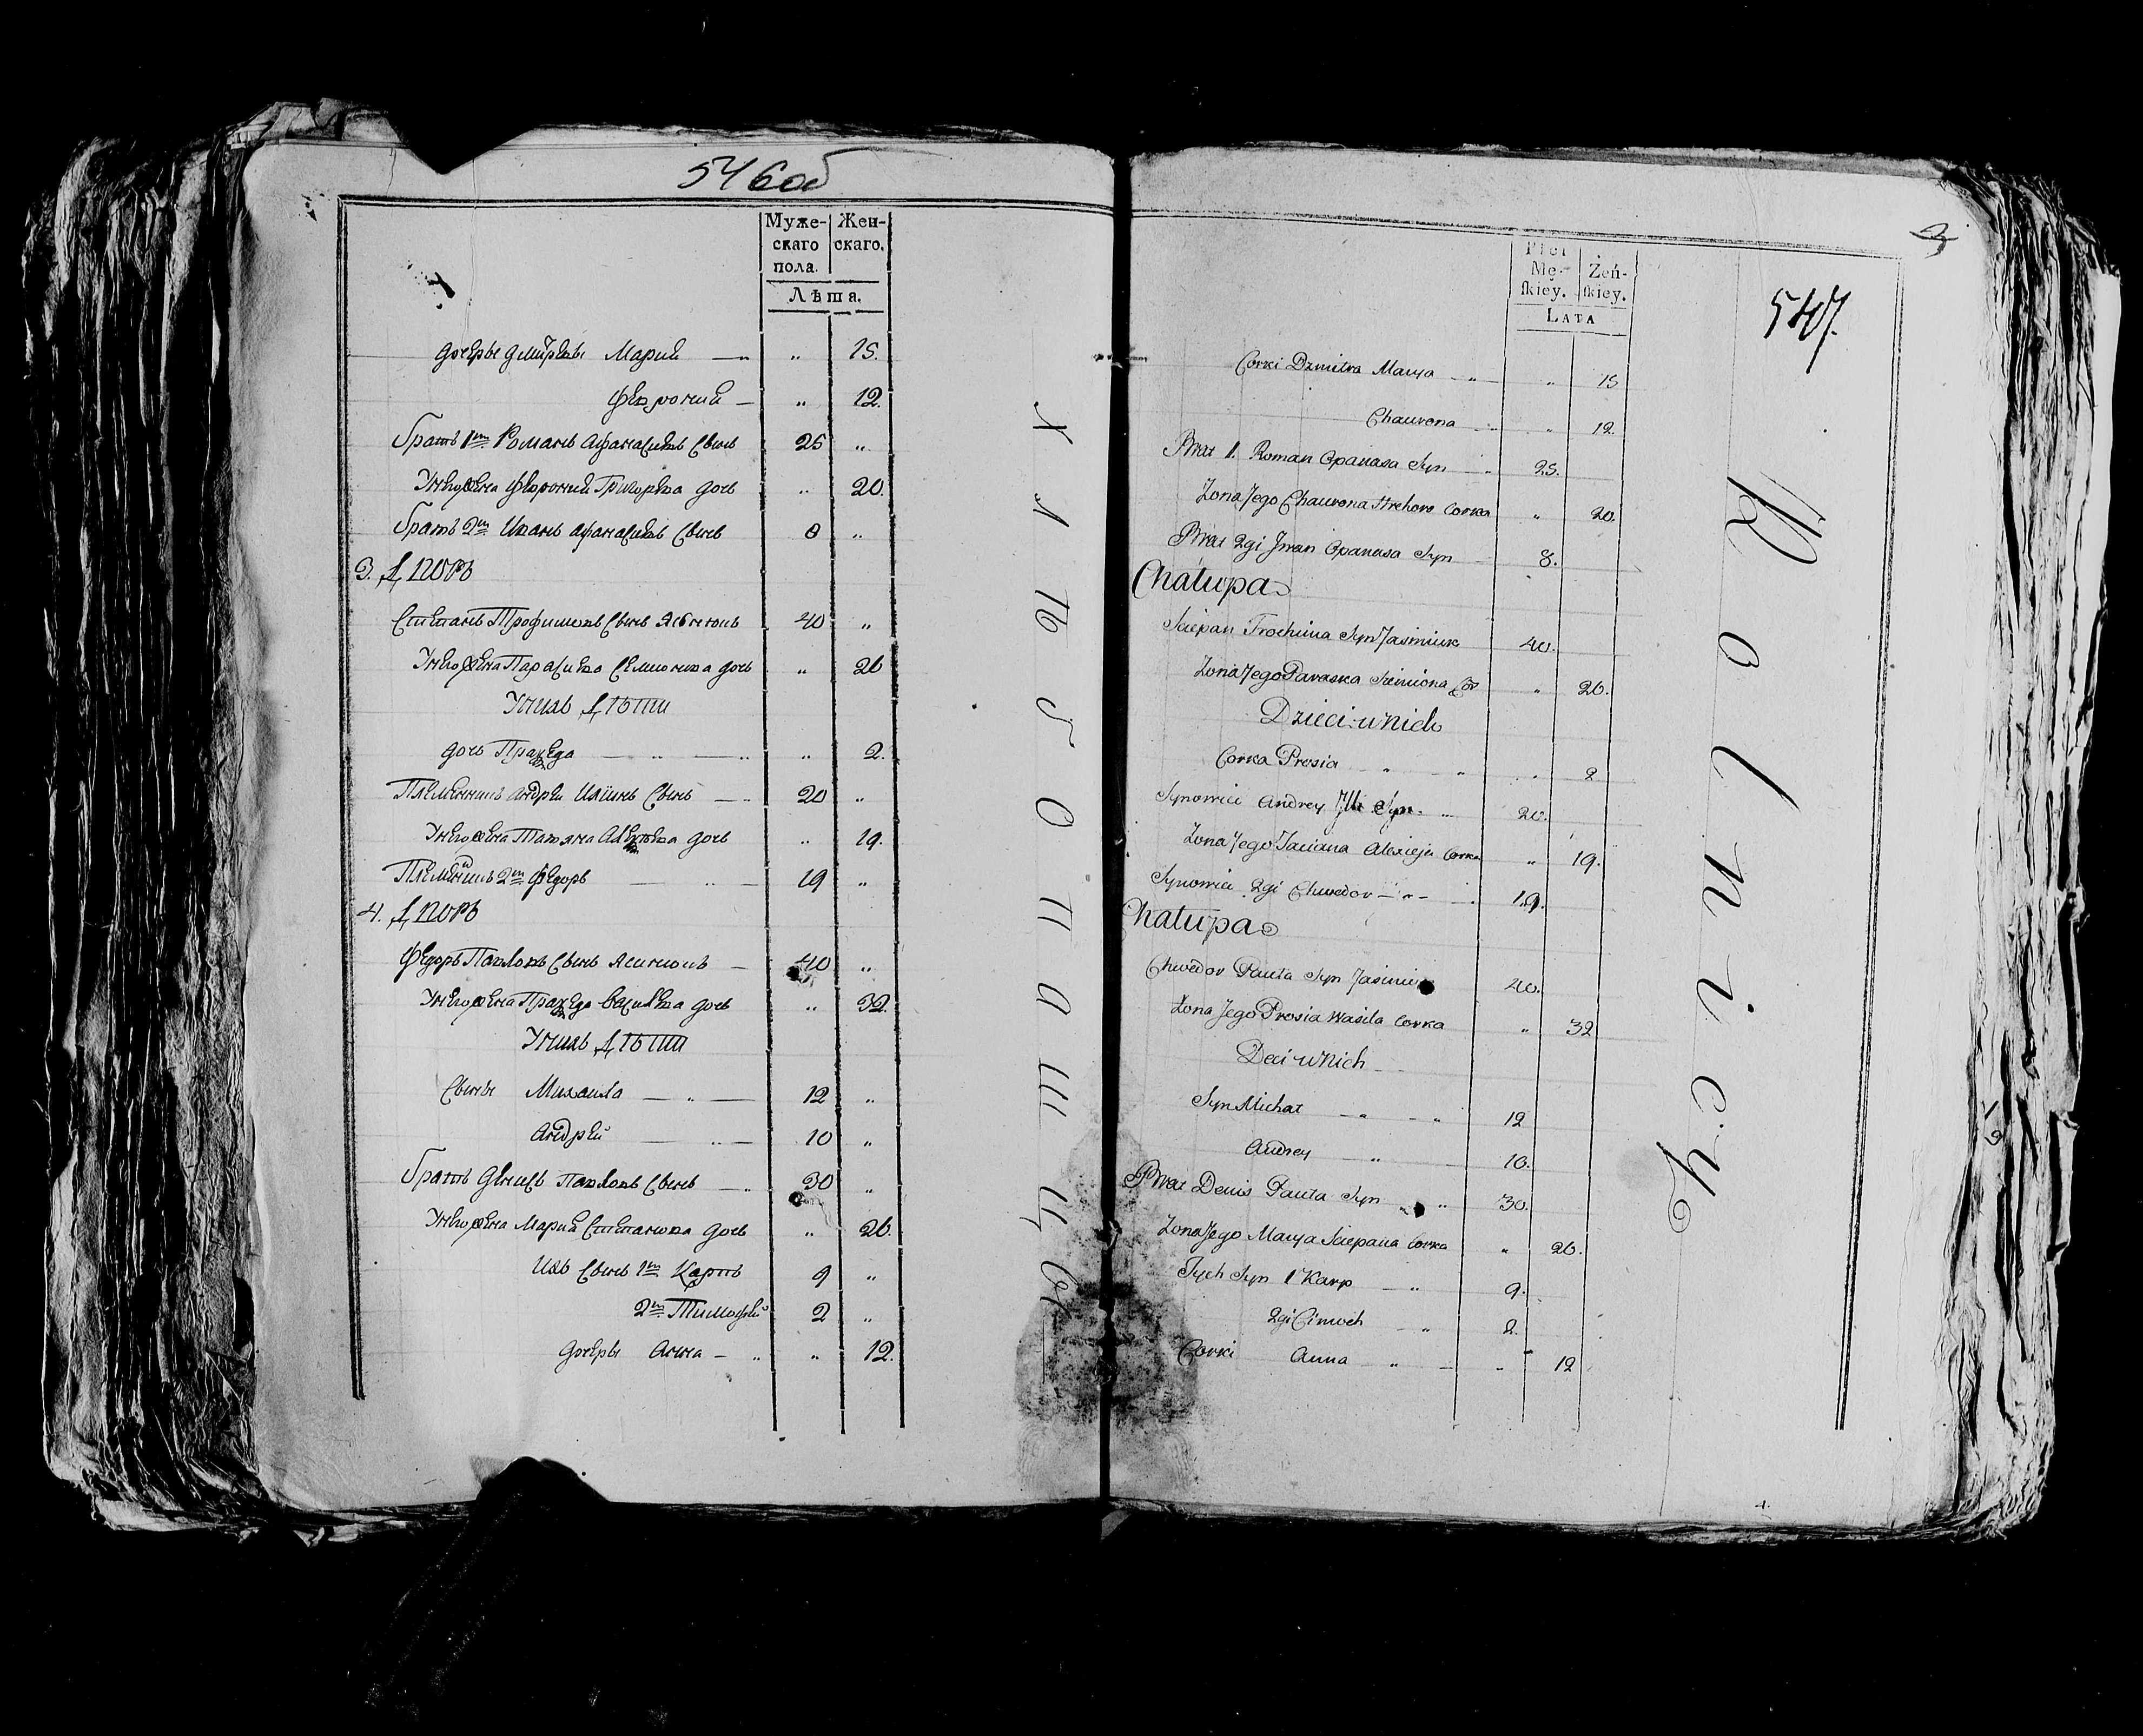 546об
Муже-
скаго
пола.
Жен-
скаго.
Лѣта.
дочеры Дмитровы Мариѣ — „ „ 15.
Феврониѣ — „ 12.
братъ 1й Романъ Афанасиевъ Сынъ 25 „
Унего жена Феврониѣ Григорева дочь „ 20.
братъ 2й Иванъ Афанасиевъ Сынъ 8 „
3. Дворъ
Степанъ Трофимовъ Сынъ Ясенюкъ 40 „
Унего жена Парасковя Семионова дочь „ 26
Унихъ Дѣти
дочь Праксeда „ „ 2.
Племенникъ Андреи Илiинъ Сынъ — 20 „
Унего жена Татяна Алексѣева дочь „ 19.
Племеникъ 2й Федоръ — 19 „
4. Дворъ
Федоръ Павловъ Сынъ Ясинюкъ — 40 „
Унего жена Праксeда Василева дочь „ 32.
Унихъ Дѣти
Сыны Михаила — „ — 12 „
Андрѣй — „ — 10 „
братъ Денисъ Павловъ Сынъ — „ 30 „
Унего жена Мариѣ Степанова дочь „ 26.
Ихъ Сынъ 1й Карпъ 9 „
2й Тимофѣй 2 „
дочеры Анна — „ „ 12.
хлѣбопашцы
3
547.
Płci
Mę-
ſkiey.
Żeń-
ſkiey.
LATA
Corki Dzmitra Marya — „ — „ 15
Chaurona „ 12.
Brat 1. Roman Opanasa Syn — „ 25.
Zona Jego Chaurona Hrehora Corka „ 20.
Brat 2gi Jwan Opanasa Syn 8.
Chałupa
Sciepan Trochima Syn Jasiniuk 40.
Zona Jego Paraska Siemiona Cor „ 26.
Dzieci u nich
Corka Prosia „ „ „ 2
Synowiec Andrey Jlli Syn. „ 20.
Zona Jego Taciana Alexieja Corka „ 19.
Synowiec 2gi Chwedor — „ — 19.
Chałupa
Chwedor Pauła Syn Jasiniuk 40.
Zona Jego Prosia Wasila Corka „ 32
Deci u nich
Syn Michał — „ — „ 12
Andrey „ 10.
Brat Denis Pauła Syn „ „ 30.
Zona Jego Marya Sciepana Corka „ 26.
Jych Syn 1 Karp — „ 9.
2gi Cimoch — „ 2.
Corki Anna „ — „ 12
Rolnicy